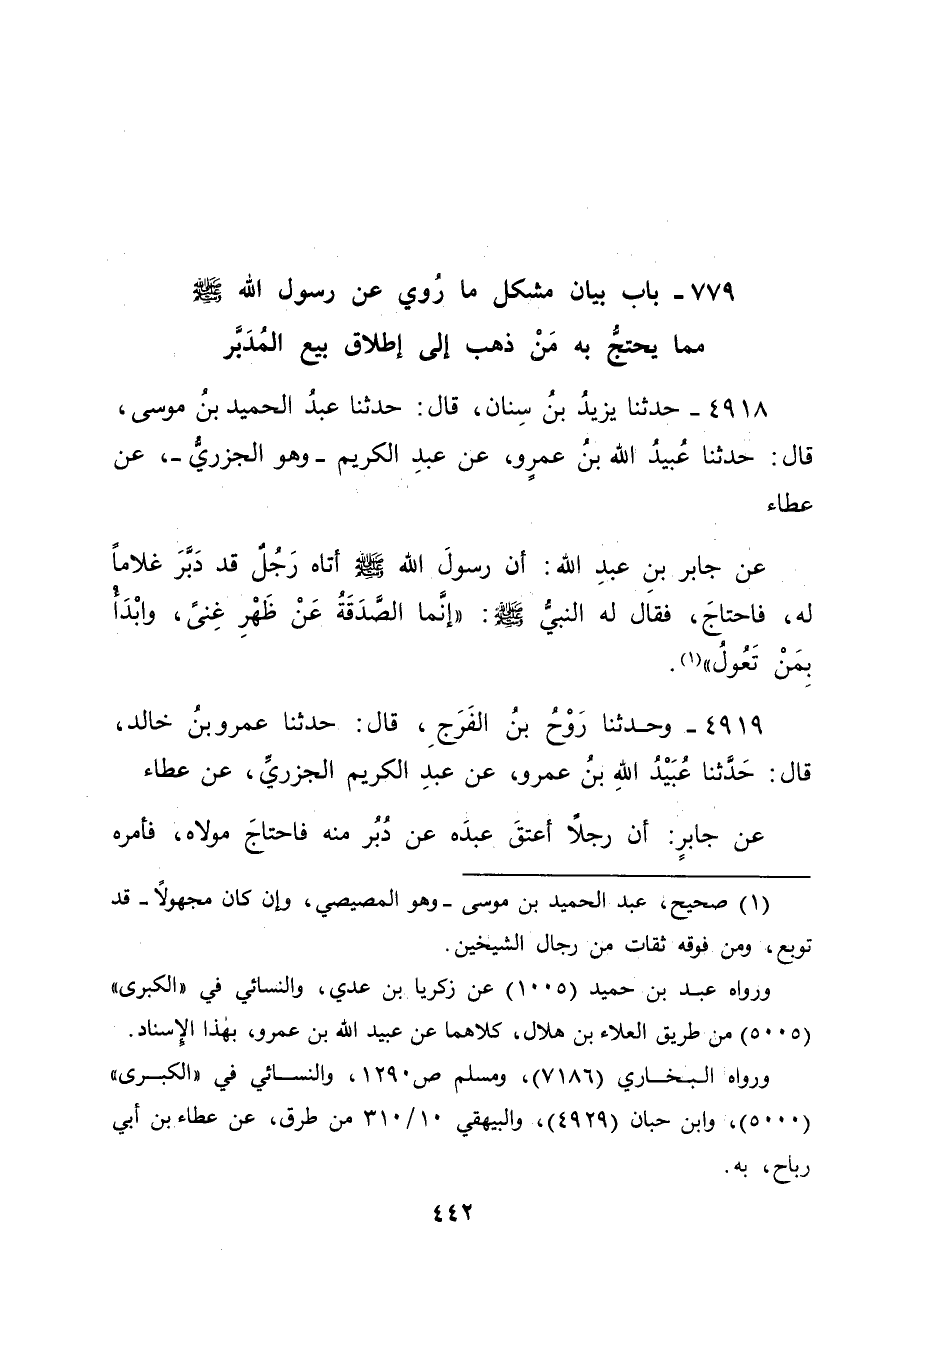 ٧٧٩ ـ باب بيان مشكل ما رُوي عن رسول الله ﷺ
مما يحتجُّ به مَنْ ذهب إلى إطلاق بيع المُدَبَّر
٤٩١٨ ـ حدثنا يزيدُ بنُ سِنان، قال: حدثنا عبدُ الحميد بنُ موسى،
قال: حدثنا عُبيدُ الله بنُ عمرٍو، عن عبدِ الكريم ـ وهو الجزريُّ ـ، عن
عطاء
عن جابر بنِ عبدِ الله: أن رسولَ الله ﷺ أتاه رَجُلٌ قد دَبَّرَ غلاماً
له، فاحتاجَ، فقال له النبيُّ ﷺ: «إنَّما الصَّدَقَةُ عَنْ ظَهْرِ غِنىً، وابْدَأْ
بِمَنْ تَعُولُ»(١).
٤٩١٩ ـ وحدثنا رَوْحُ بنُ الفَرَجِ، قال: حدثنا عمرو بنُ خالد،
قال: حَدَّثنا عُبَيْدُ اللهِ بنُ عمرو، عن عبدِ الكريم الجزريِّ، عن عطاء
عن جابرٍ: أن رجلاً أعتقَ عبدَه عن دُبُر منه فاحتاجَ مولاه، فأمره
(١) صحيح، عبد الحميد بن موسى ـ وهو المصيصي، وإن كان مجهولاً ـ قد
توبع، ومن فوقه ثقات من رجال الشيخين.
ورواه عبد بن حميد (١٠٠٥) عن زكريا بن عدي، والنسائي في «الكبرى»
(٥٠٠٥) من طريق العلاء بن هلال، كلاهما عن عبيد الله بن عمرو، بهٰذا الإسناد.
ورواه البخاري (٧١٨٦)، ومسلم ص١٢٩٠، والنسائي في «الكبرى»
(٥٠٠٠)، وابن حبان (٤٩٢٩)، والبيهقي ٣١٠/١٠ من طرق، عن عطاء بن أبي
رباح، به.
٤٤٢